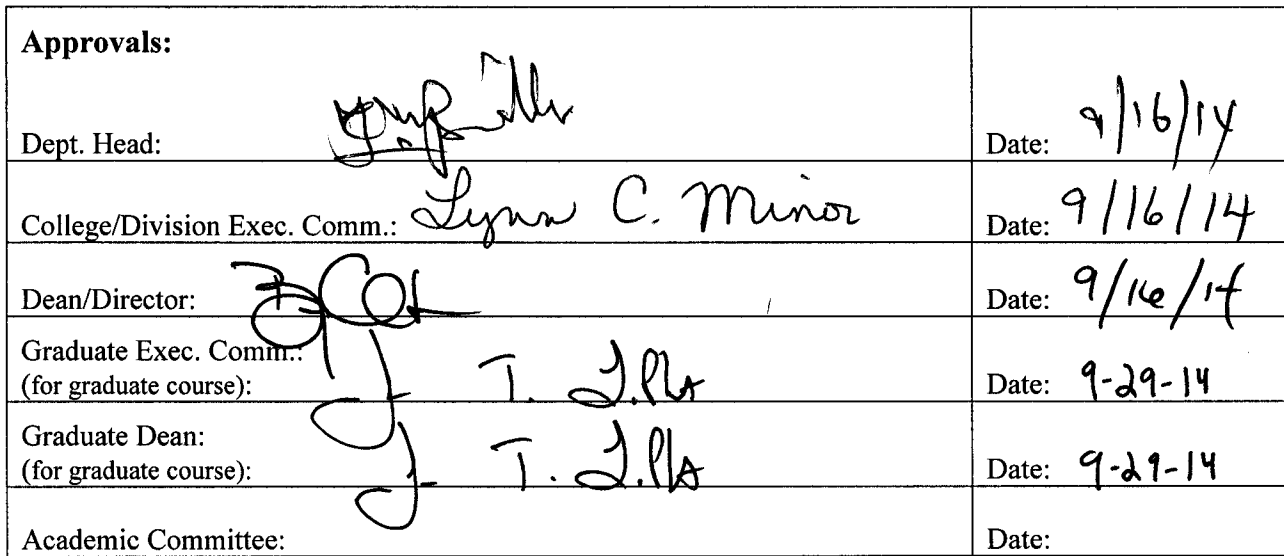 Approvals:
Dept. Head: Date: 9/16/14
College/Division Exec. Comm.: Lynn C. Minor Date: 9/16/14
Dean/Director: Date: 9/16/14
Graduate Exec. Comm.:
(for graduate course): J. T. Date: 9-29-14
Graduate Dean:
(for graduate course): J. T. Date: 9-29-14
Academic Committee: Date: